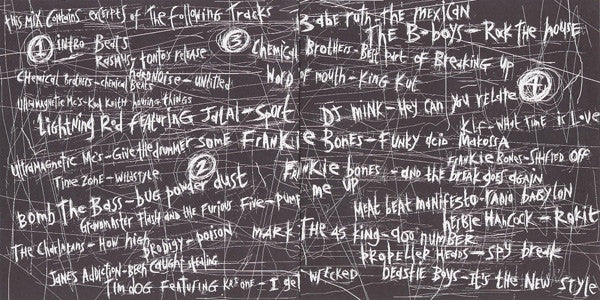 this mix contains excerpts of the following tracks
1
intro Beats
Rashmis tontos release
Chemical Brothers-chemical Beats
Hardnoise-untitled
ultramagnetic Mc's-Kool Keith housing things
Lightning Rod featuring Jalal-Sport
ultramagnetic Mc's-Give the drummer some
2
Time Zone-wildstyle
Bomb The Bass-bug powder dust
Grandmaster Flash and the Furious Five-pump me up
The Charlatans-How high
Prodigy-poison
Janes Addiction-Been caught stealing
Tim dog featuring KRS one-I get wrecked
3
Chemical Brothers-Best part of Breaking up
Word of mouth-King Kut
DJ mink-Hey can you relate
KLF-what time is Love
Frankie Bones-Funky acid Makossa
Frankie Bones-shifted off
Frankie bones-and the break goes again
Meat beat manifesto-radio babylon
herbie Hancock-Rokit
mark The 45 king-900 number
propeller heads-spy break
beastie Boys-It's the New style
Babe ruth-the mexican
The B-boys-Rock the house
4